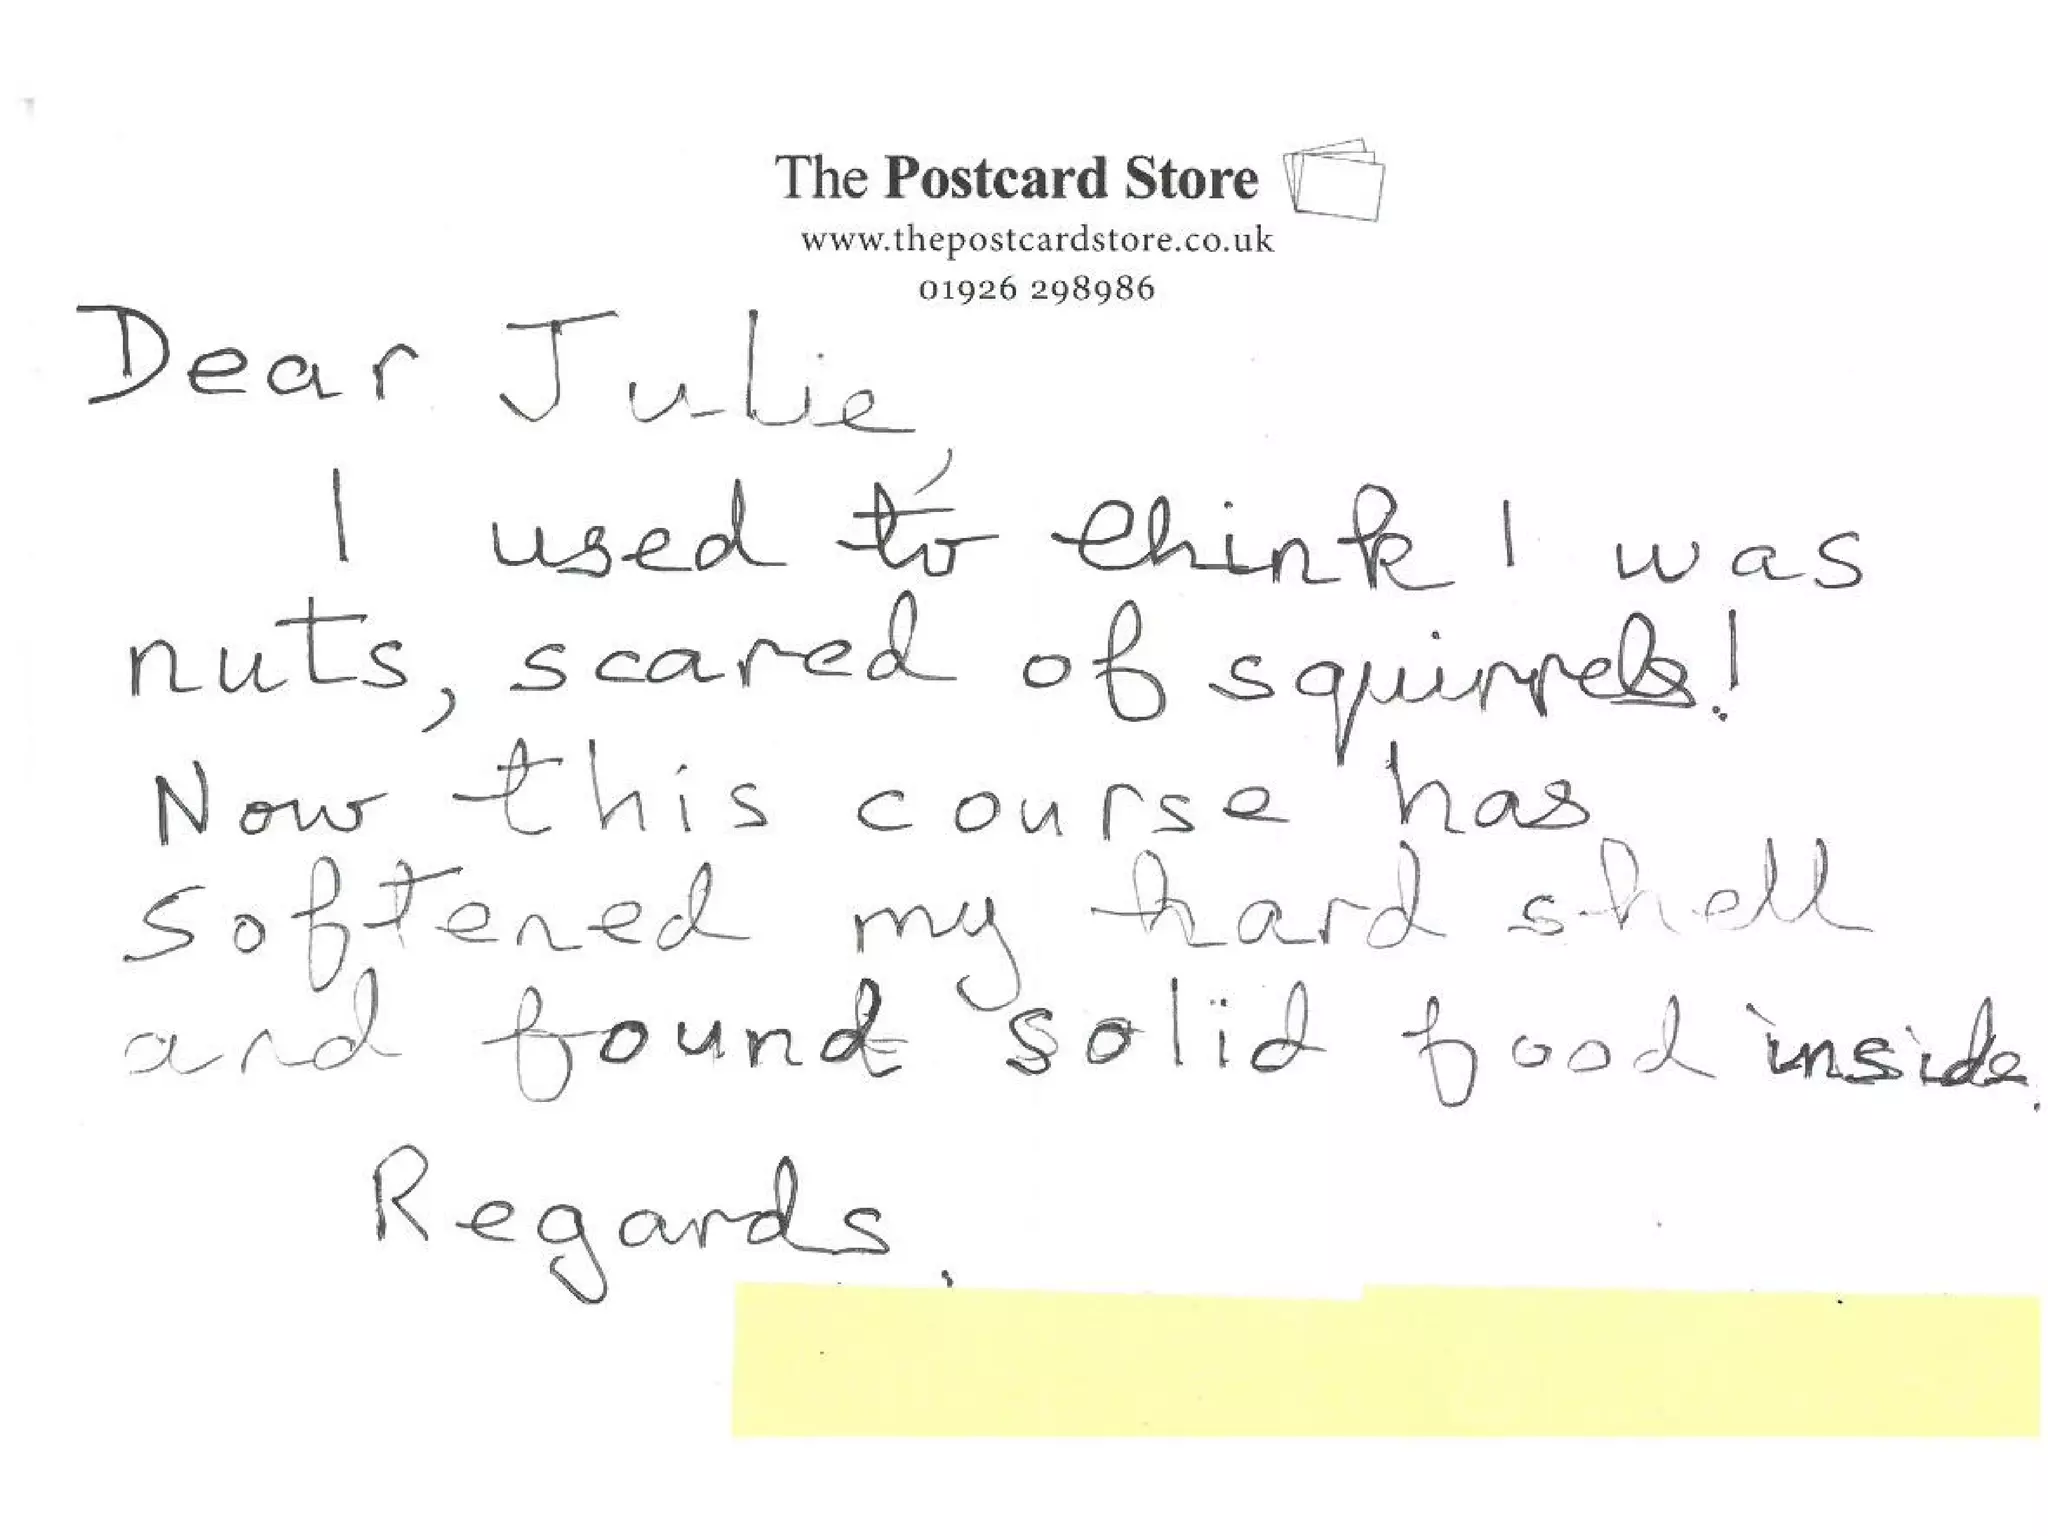 The Postcard Store
www.thepostcardstore.co.uk
01926 298986
Dear Julie,
I used to think I was
nuts, scared of squirrels!
Now this course has
softened my hard shell
and found solid food inside.
Regards.